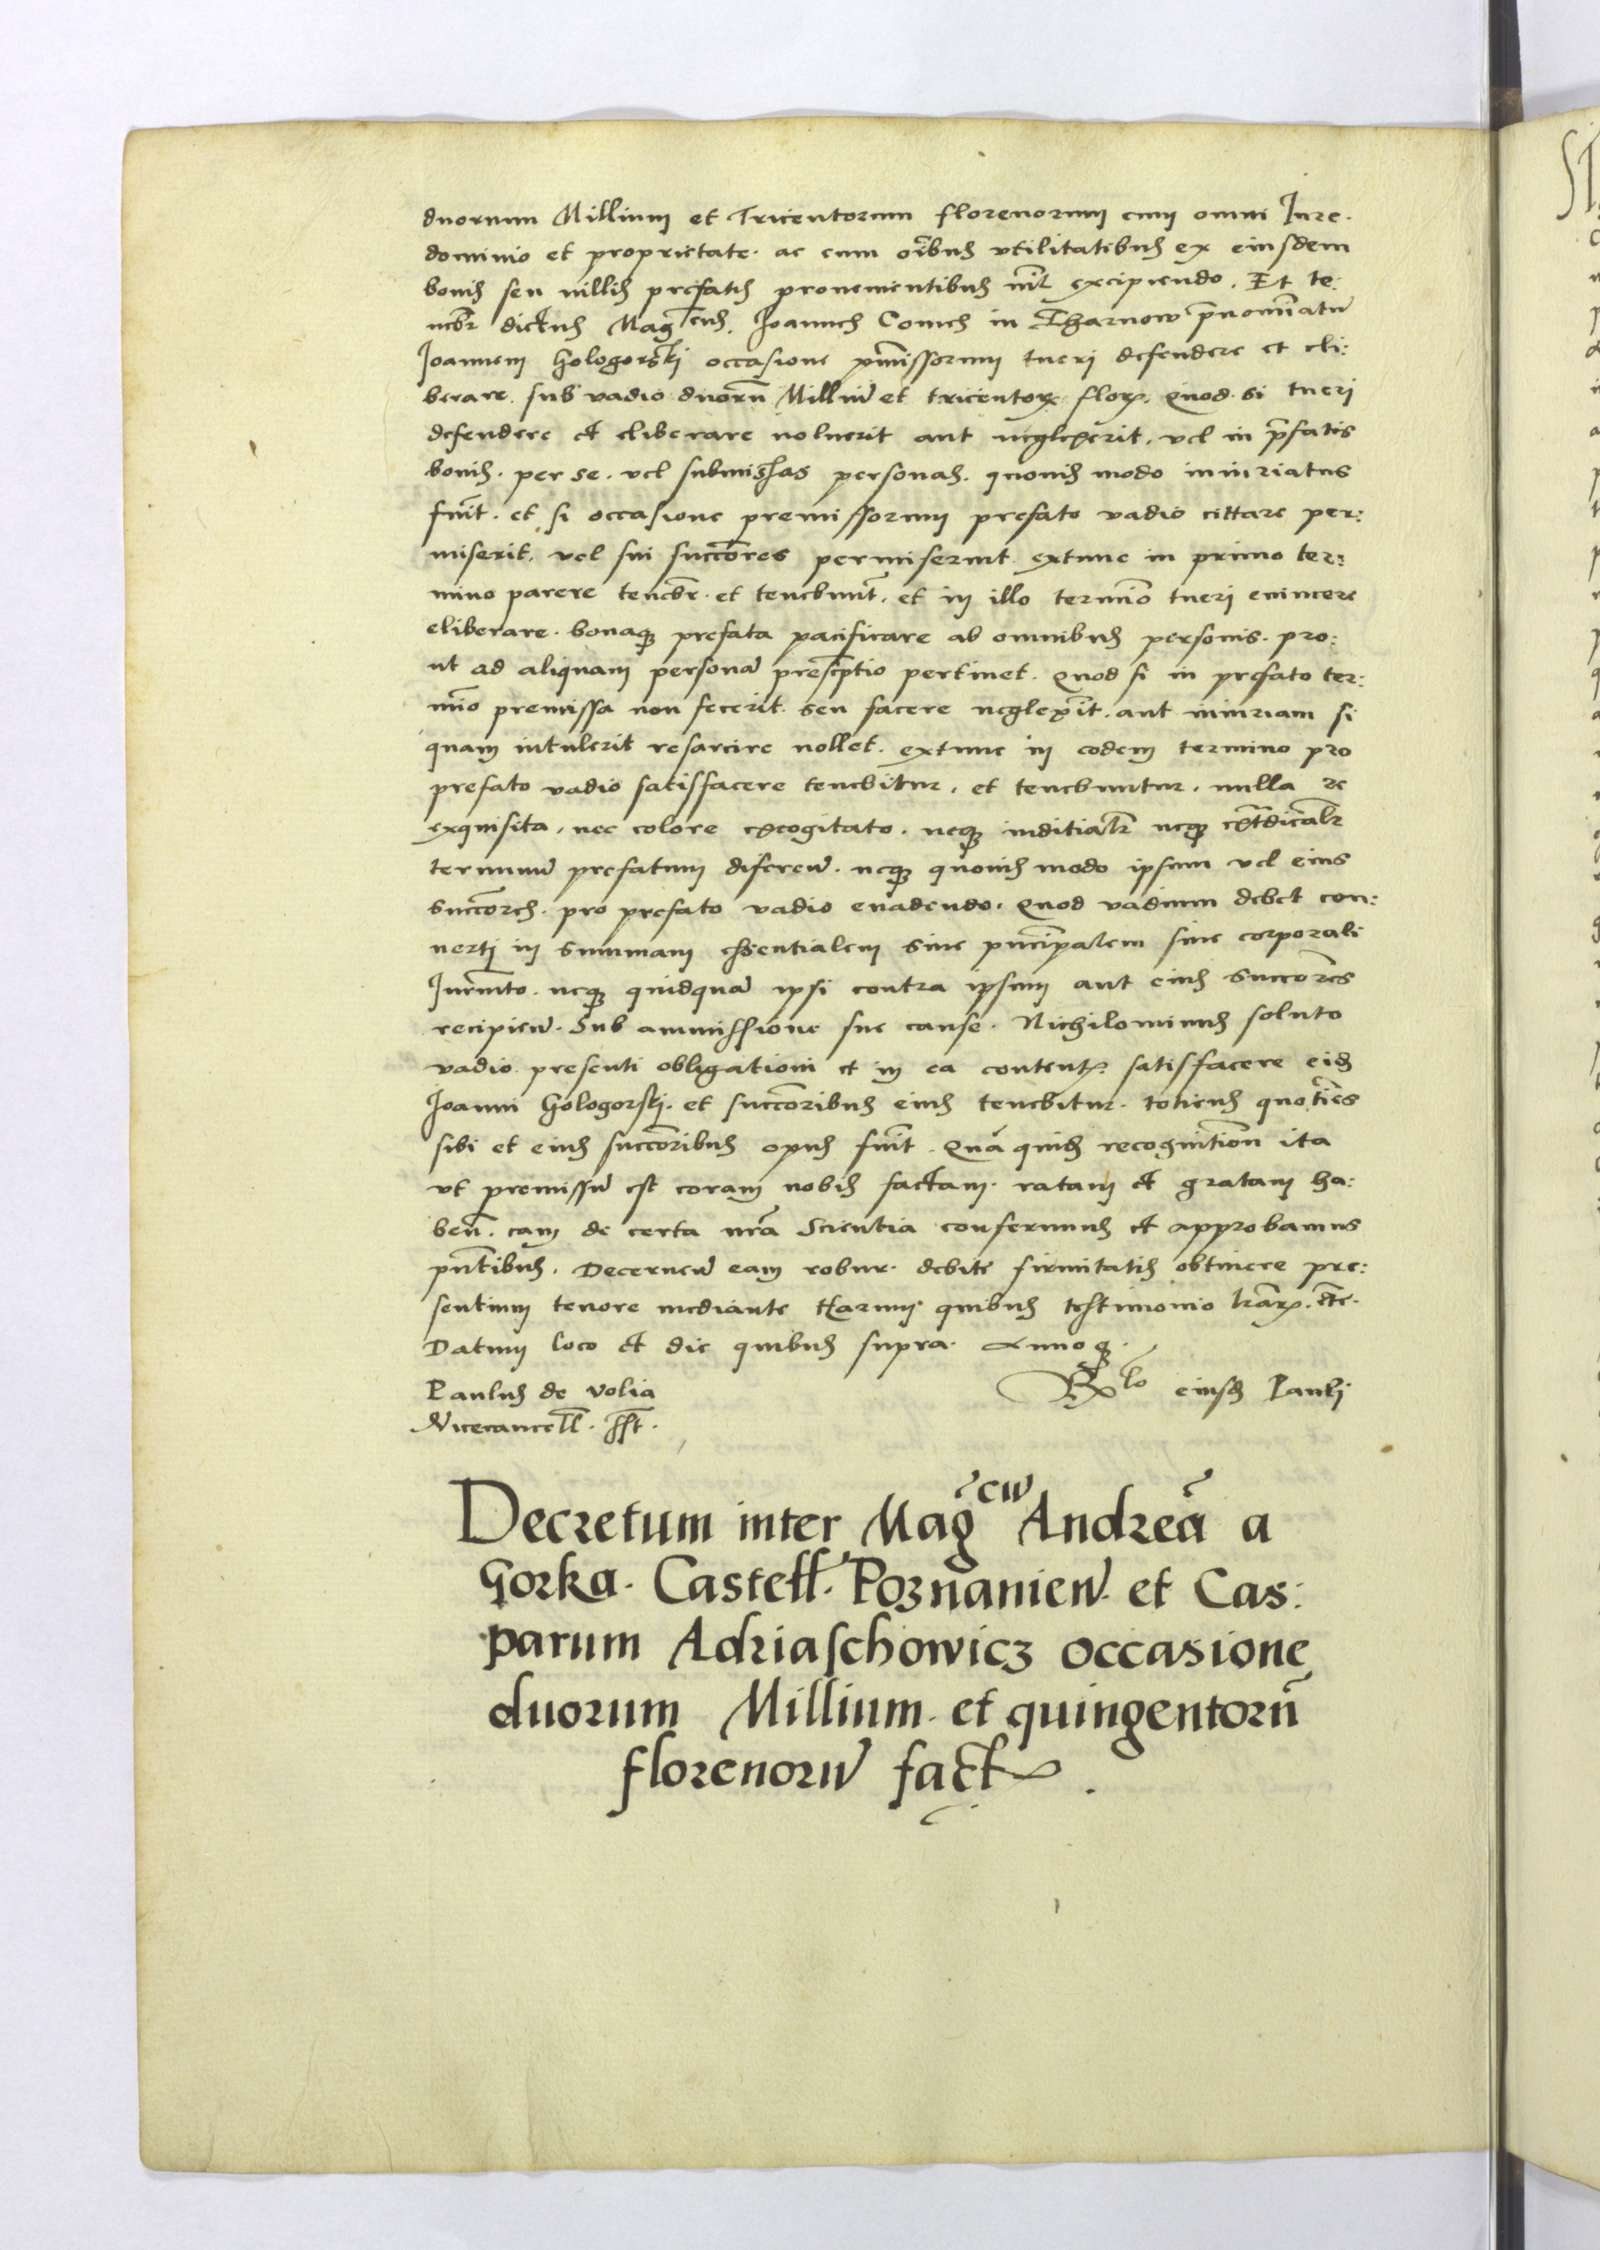 duorum Millium et Tricentorum florenorum cum omni Iure.
dominio et proprietate. ac cum oībus utilitatibus ex eiusdem
bonis seu villis prefatis provenientibus nil excipiendo. Et te:
nebr dictus Magcus. Joannes Comes in Tharnow prenominatū
Joannem Gologorski occasione pmissorum tueri defendere et eli:
berare. sub vadio duorū Milliū et tricentorꝝ florꝝ. Quod si tueri
defendere et eliberare noluerit aut neglexerit. vel in prefatis
bonis. per se. vel submissas personas. quovis modo iniuriatus
fuīt. et si occasione premissorum prefato vadio cittare per:
miserit. vel sui succōres permiserint extunc in primo ter:
mino parere tenebr. et tenebunt. et in illo termīo tueri evincere
eliberare. bonaqꝫ prefata pacificare ab omnibus personis. pro:
ut ad aliquam personā prescptio pertinet. Quod si in prefato ter:
mīo premissa non fecerit. seu facere neglexīt. aut iniuriam si
quam intulerit resarcire nollet. extunc in eodem termino pro
prefato vadio satisfacere tenebitur. et tenebuntur. nulla re
exquisita. nec colore excogitato. neqꝫ inditialr neqꝫ exˉtˉdicialr
terminū prefatum diferen̄. neqꝫ quovis modo ipsum vel eius
succōres. pro prefato vadio evadendo. Quod vadium debet con:
verti in summam essentialem sive pncipalem sine corporali
Iurmto. neqꝫ quidquā ipsi contra ipsum aut eius succōres
recipien̄. Sub ammissione sue cause. Nichilominus soluto
vadio presenti obligationi et in ea contentꝭ satisfacere eidꝫ
Joanni Gologorski. et succōribus eius tenebitur. totiens quotīes
sibi et eius succōribus opus fuīt. Quā quidꝫ recognitīon ita
ut premissū est coram nobis factam. ratam et gratam ha:
ben̄. eam de certa nrā Scientia confermus et approbamus
pn̄tibus. Decernen̄ eam robur. debite firmitatis obtinere pre:
sentium tenore mediante harum quibus testimonio lrārꝝ. etc.
Datum loco et die quibus supra. Annoqꝫ.
Paulus de Volia Rlo eiusdꝫ Pauli
Vicecancell. sst.
Decretum inter Magcū Andreā a
Gorka. Castell. Poznanien̄. et Cas:
parum Adriaschowicz occasione
duorum Millium. et quingentorū
florenorū fact.